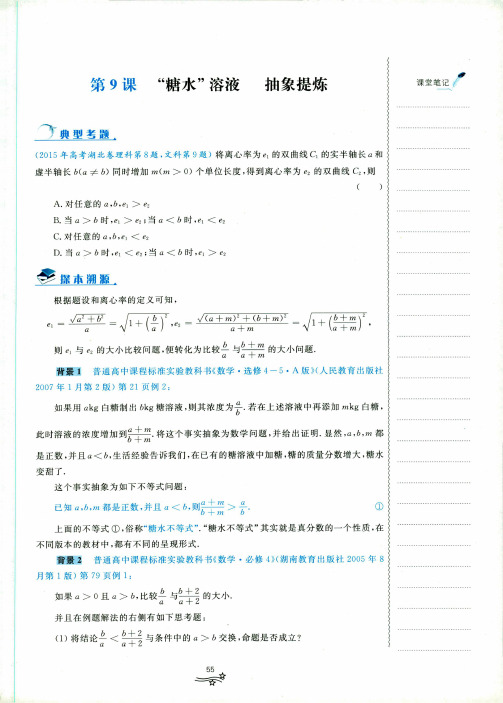 第9课 “糖水”溶液 抽象提炼
课堂笔记
典型考题
(2015年高考湖北卷理科第8题,文科第9题)将离心率为e₁的双曲线C₁的实半轴长a和
虚半轴长b(a≠b)同时增加m(m>0)个单位长度,得到离心率为e₂的双曲线C₂,则
( )
A.对任意的a,b,e₁>e₂
B.当a>b时,e₁>e₂;当a<b时,e₁<e₂
C.对任意的a,b,e₁<e₂
D.当a>b时,e₁<e₂;当a<b时,e₁>e₂
探本溯源
根据题设和离心率的定义可知,
e₁=√(a²+b²)/a=√(1+(b/a)²),e₂=√((a+m)²+(b+m)²)/(a+m)=√(1+((b+m)/(a+m))²),
则e₁与e₂的大小比较问题,便转化为比较b/a与(b+m)/(a+m)的大小问题.
背景1 普通高中课程标准实验教科书《数学·选修4-5·A版》(人民教育出版社
2007年1月第2版)第21页例2:
如果用akg白糖制出bkg糖溶液,则其浓度为a/b.若在上述溶液中再添加mkg白糖,
此时溶液的浓度增加到(a+m)/(b+m).将这个事实抽象为数学问题,并给出证明.显然,a,b,m都
是正数,并且a<b,生活经验告诉我们,在已有的糖溶液中加糖,糖的质量分数增大,糖水
变甜了.
这个事实抽象为如下不等式问题:
已知a,b,m都是正数,并且a<b,则(a+m)/(b+m)>a/b. ①
上面的不等式①,俗称“糖水不等式”.“糖水不等式”其实就是真分数的一个性质,在
不同版本的教材中,都有不同的呈现形式.
背景2 普通高中课程标准实验教科书《数学·必修4》(湖南教育出版社2005年8
月第1版)第79页例1:
如果a>0且a>b,比较b/a与(b+2)/(a+2)的大小.
并且在例题解法的右侧有如下思考题:
(1)将结论b/a<(b+2)/(a+2)与条件中的a>b交换,命题是否成立?
55